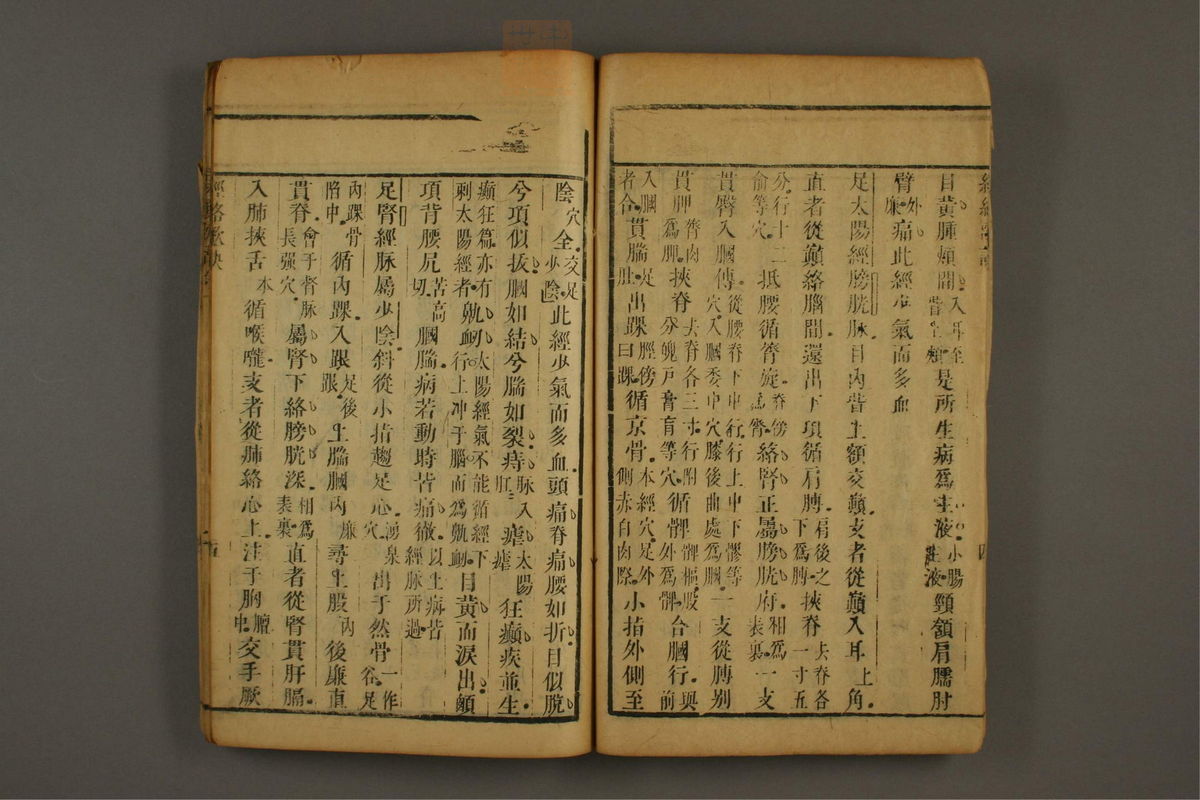 目黃腫頰間入耳至目銳眥上頰是所生病爲主液小腸主液頸頷肩臑肘
臂外廉痛此經少氣而多血
足太陽經膀胱脉目內眥上額交巔支者從巔入耳上角
直者從巔絡腦間還出下項循肩膊肩後之下爲膊挾脊去脊各一寸五
分行十二俞等穴抵腰循膂旋脊傍爲膂絡腎正屬膀胱府相爲表裏一支
貫臀入膕傳從腰脊下中行行上中下髎等穴入膕委中穴膝後曲處爲膕一支從膊別
貫胛膂肉爲胛挾脊去脊各三寸行附分魄戶膏肓等穴循髀髀樞股外爲髀合膕行與前
入膕者合貫腨足肚出踝脛傍曰踝循京骨本經穴足外側赤白肉際小指外側至
陰穴全交足少陰此經少氣而多血頭痛脊痛腰如折目似脫
兮項似拔膕如結兮腨如裂痔脉入肛瘧太陽瘧狂癲疾並生
癲狂篇亦有刺太陽經者鼽衂太陽經氣不能循經下行上冲于腦而爲鼽衂目黃而淚出顖
項背腰尻苦高切膕腨病若動時皆痛徹以上病苦經脉所過
足腎經脉屬少陰斜從小指趨足心湧泉穴出于然骨一作谷足
內踝骨陷中循內踝入跟足後跟上腨膕內廉尋上股內後廉直
貫脊會于督脉長強穴屬腎下絡膀胱深相爲表裏直者從腎貫肝膈
入肺挾舌本循喉嚨支者從肺絡心上注于胸膻中交手厥
經絡歌訣
五